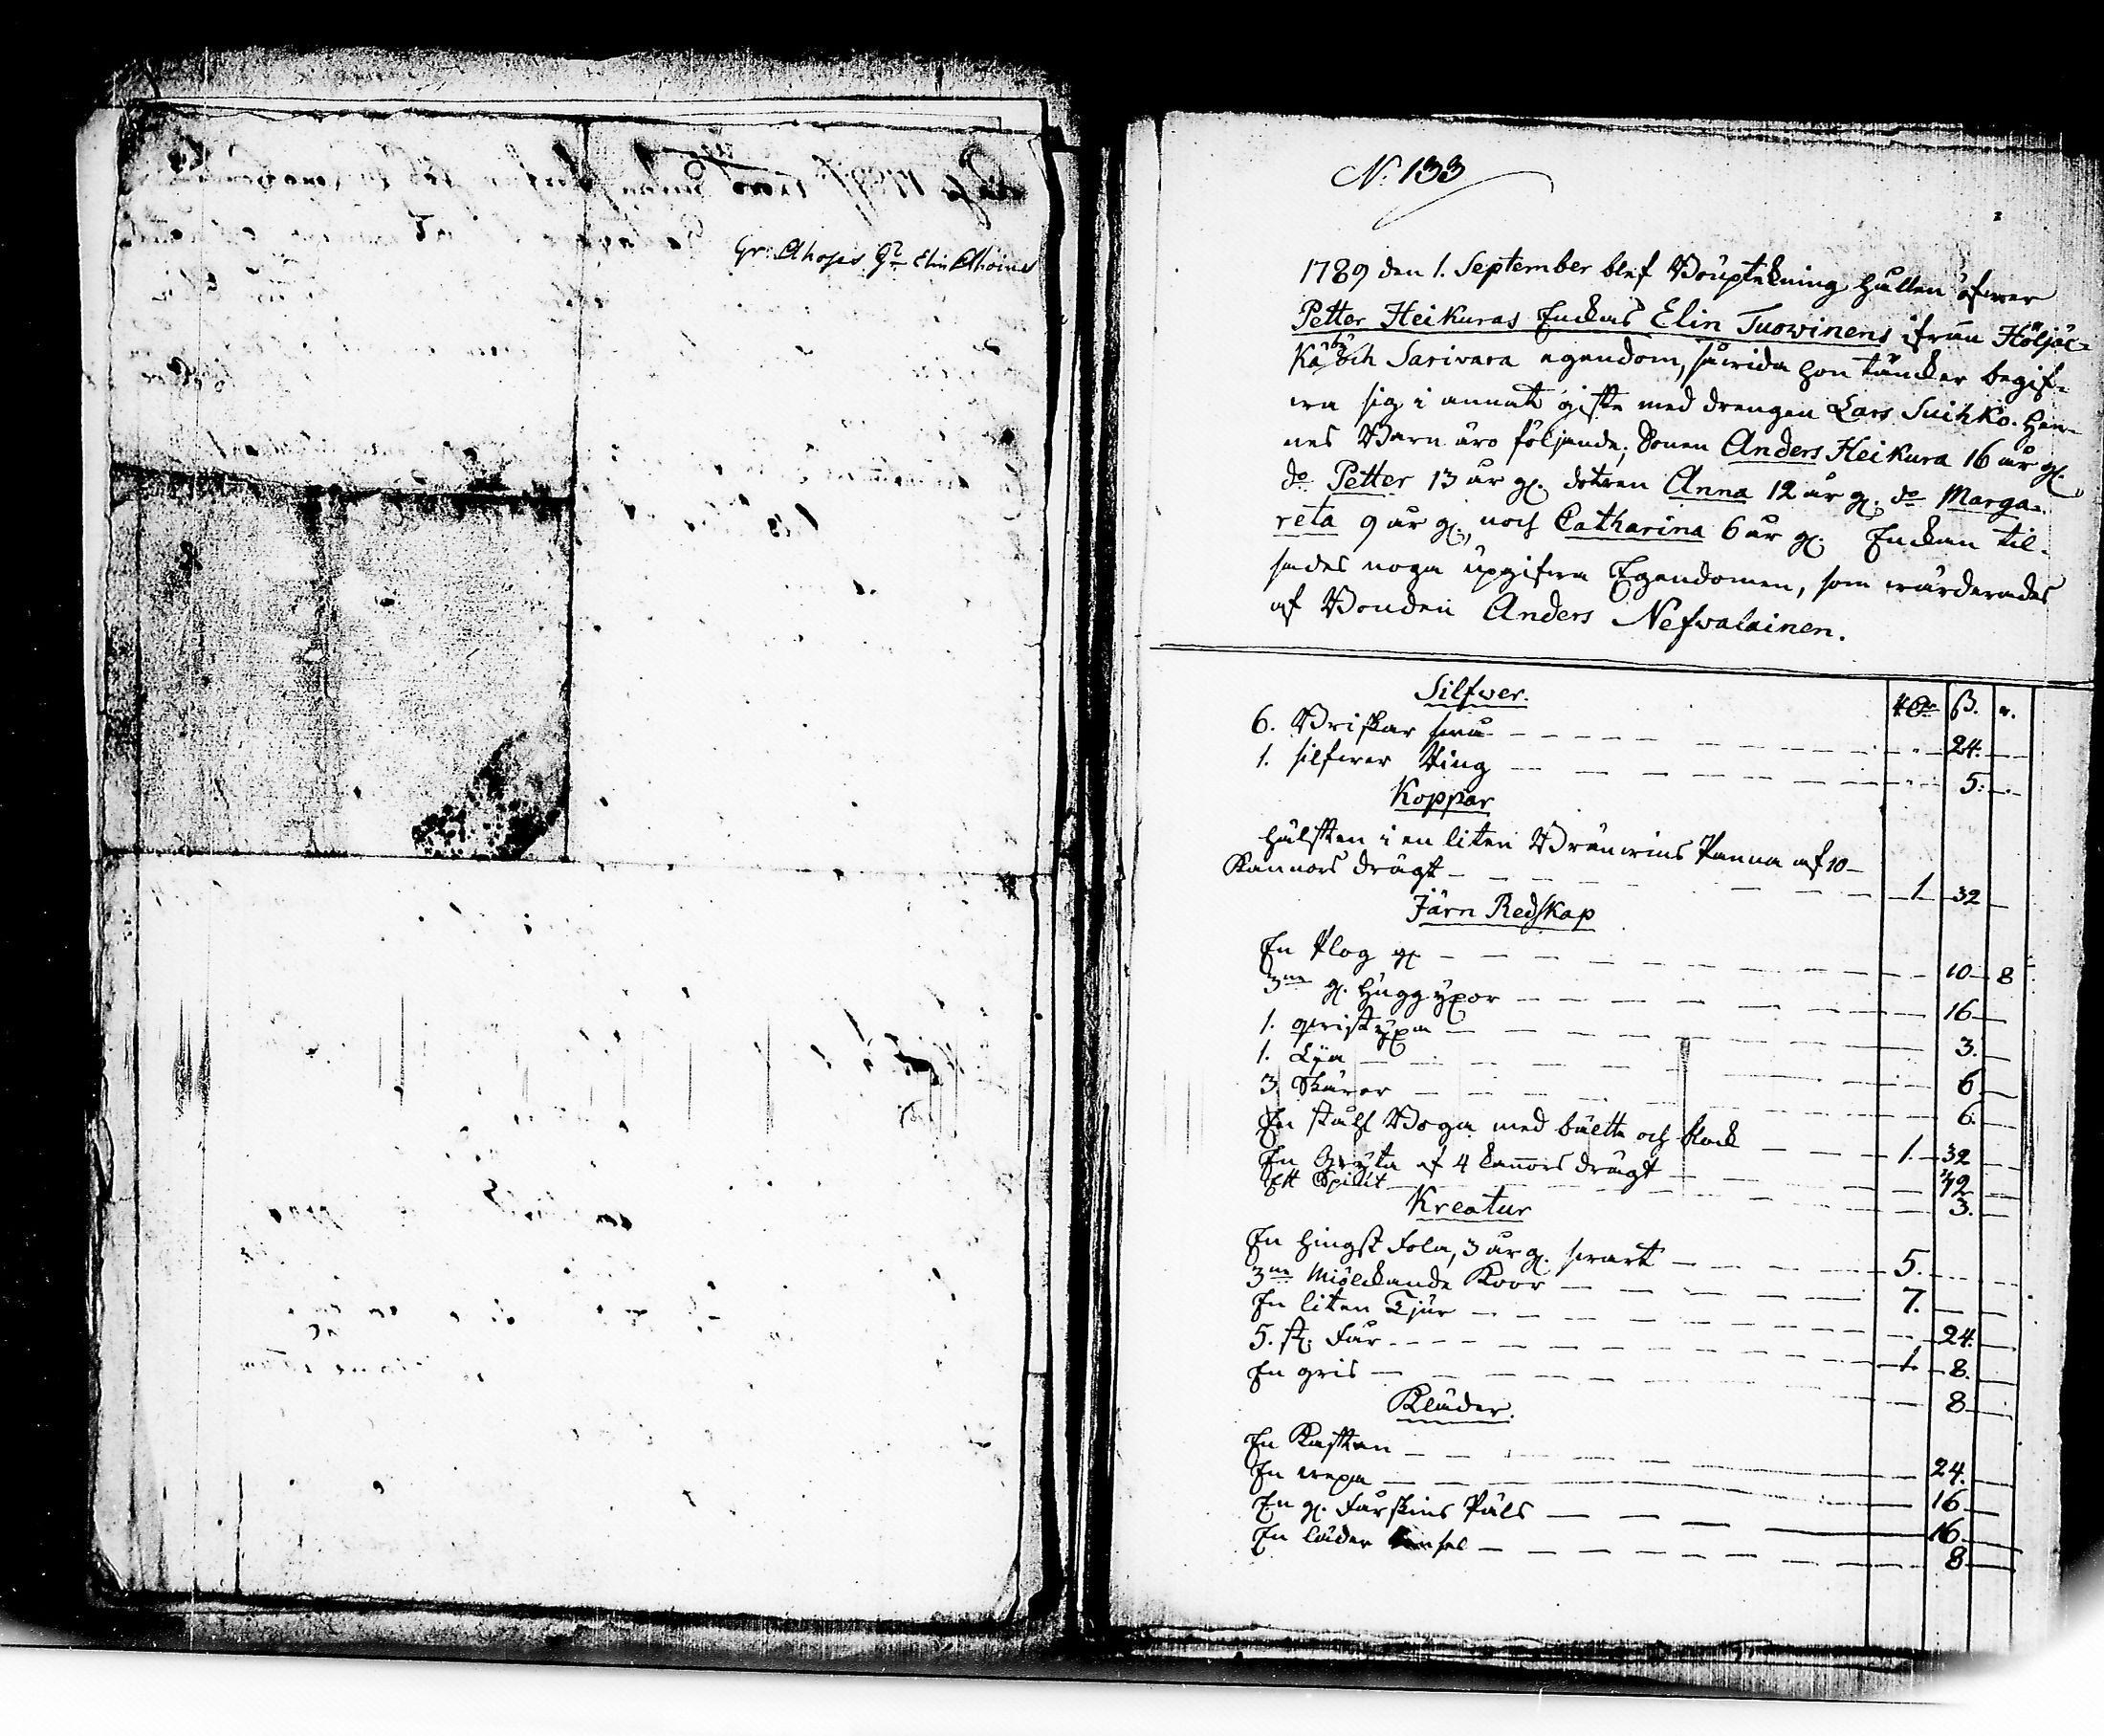 Gr: Ahopes Elin Ahoine
N. 133
1789 den 1. September blef Bouptekning hållen öfwer
Petter Heikuras Enckas Elin Tuowinens ifrån Höljäc-
kä by och Sarivara egendom, såwida hon täncker begif-
wa sig i annat gifte med drengen Lars Suihko. Hen-
nes Barn äro följande; Sonen Anders Heikura 16 år gl.
do Petter 13 år gl. dotren Anna 12 år gl. do Marga-
reta 9 år gl., noch Catharina 6 år gl. Enckan til-
sades noga upgifwa Egendomen, som wärderades
af Bonden Anders Nefwalainen.
Silfwer. ß. r.
6. Briskar små 24.
1. silfwer Ring 5.
Koppar
Hälften i en liten Bränwins Panna af 10
Kannors drägt 1 32
Järn Redskap
En Plog gl 10 8
3ne gl. Huggyxor 16
1. qwistyxa 3.
1. Lya 6
3 Skäror 6.
En ståhl Boga med bälte och block 1. 32
En Gryta af 4 kannors drägt 12
Ett Spiut 3.
Kreatur
En Hingst Fola, 3 år gl. swart 5.
3ne Miölckande Koor 7.
En liten Tjur 24.
5. st. Får 1 8.
En gris 8
Kläder.
En Kaftan 24.
En wepa 16
En gl. Fårskins Päls 16
En läder 8